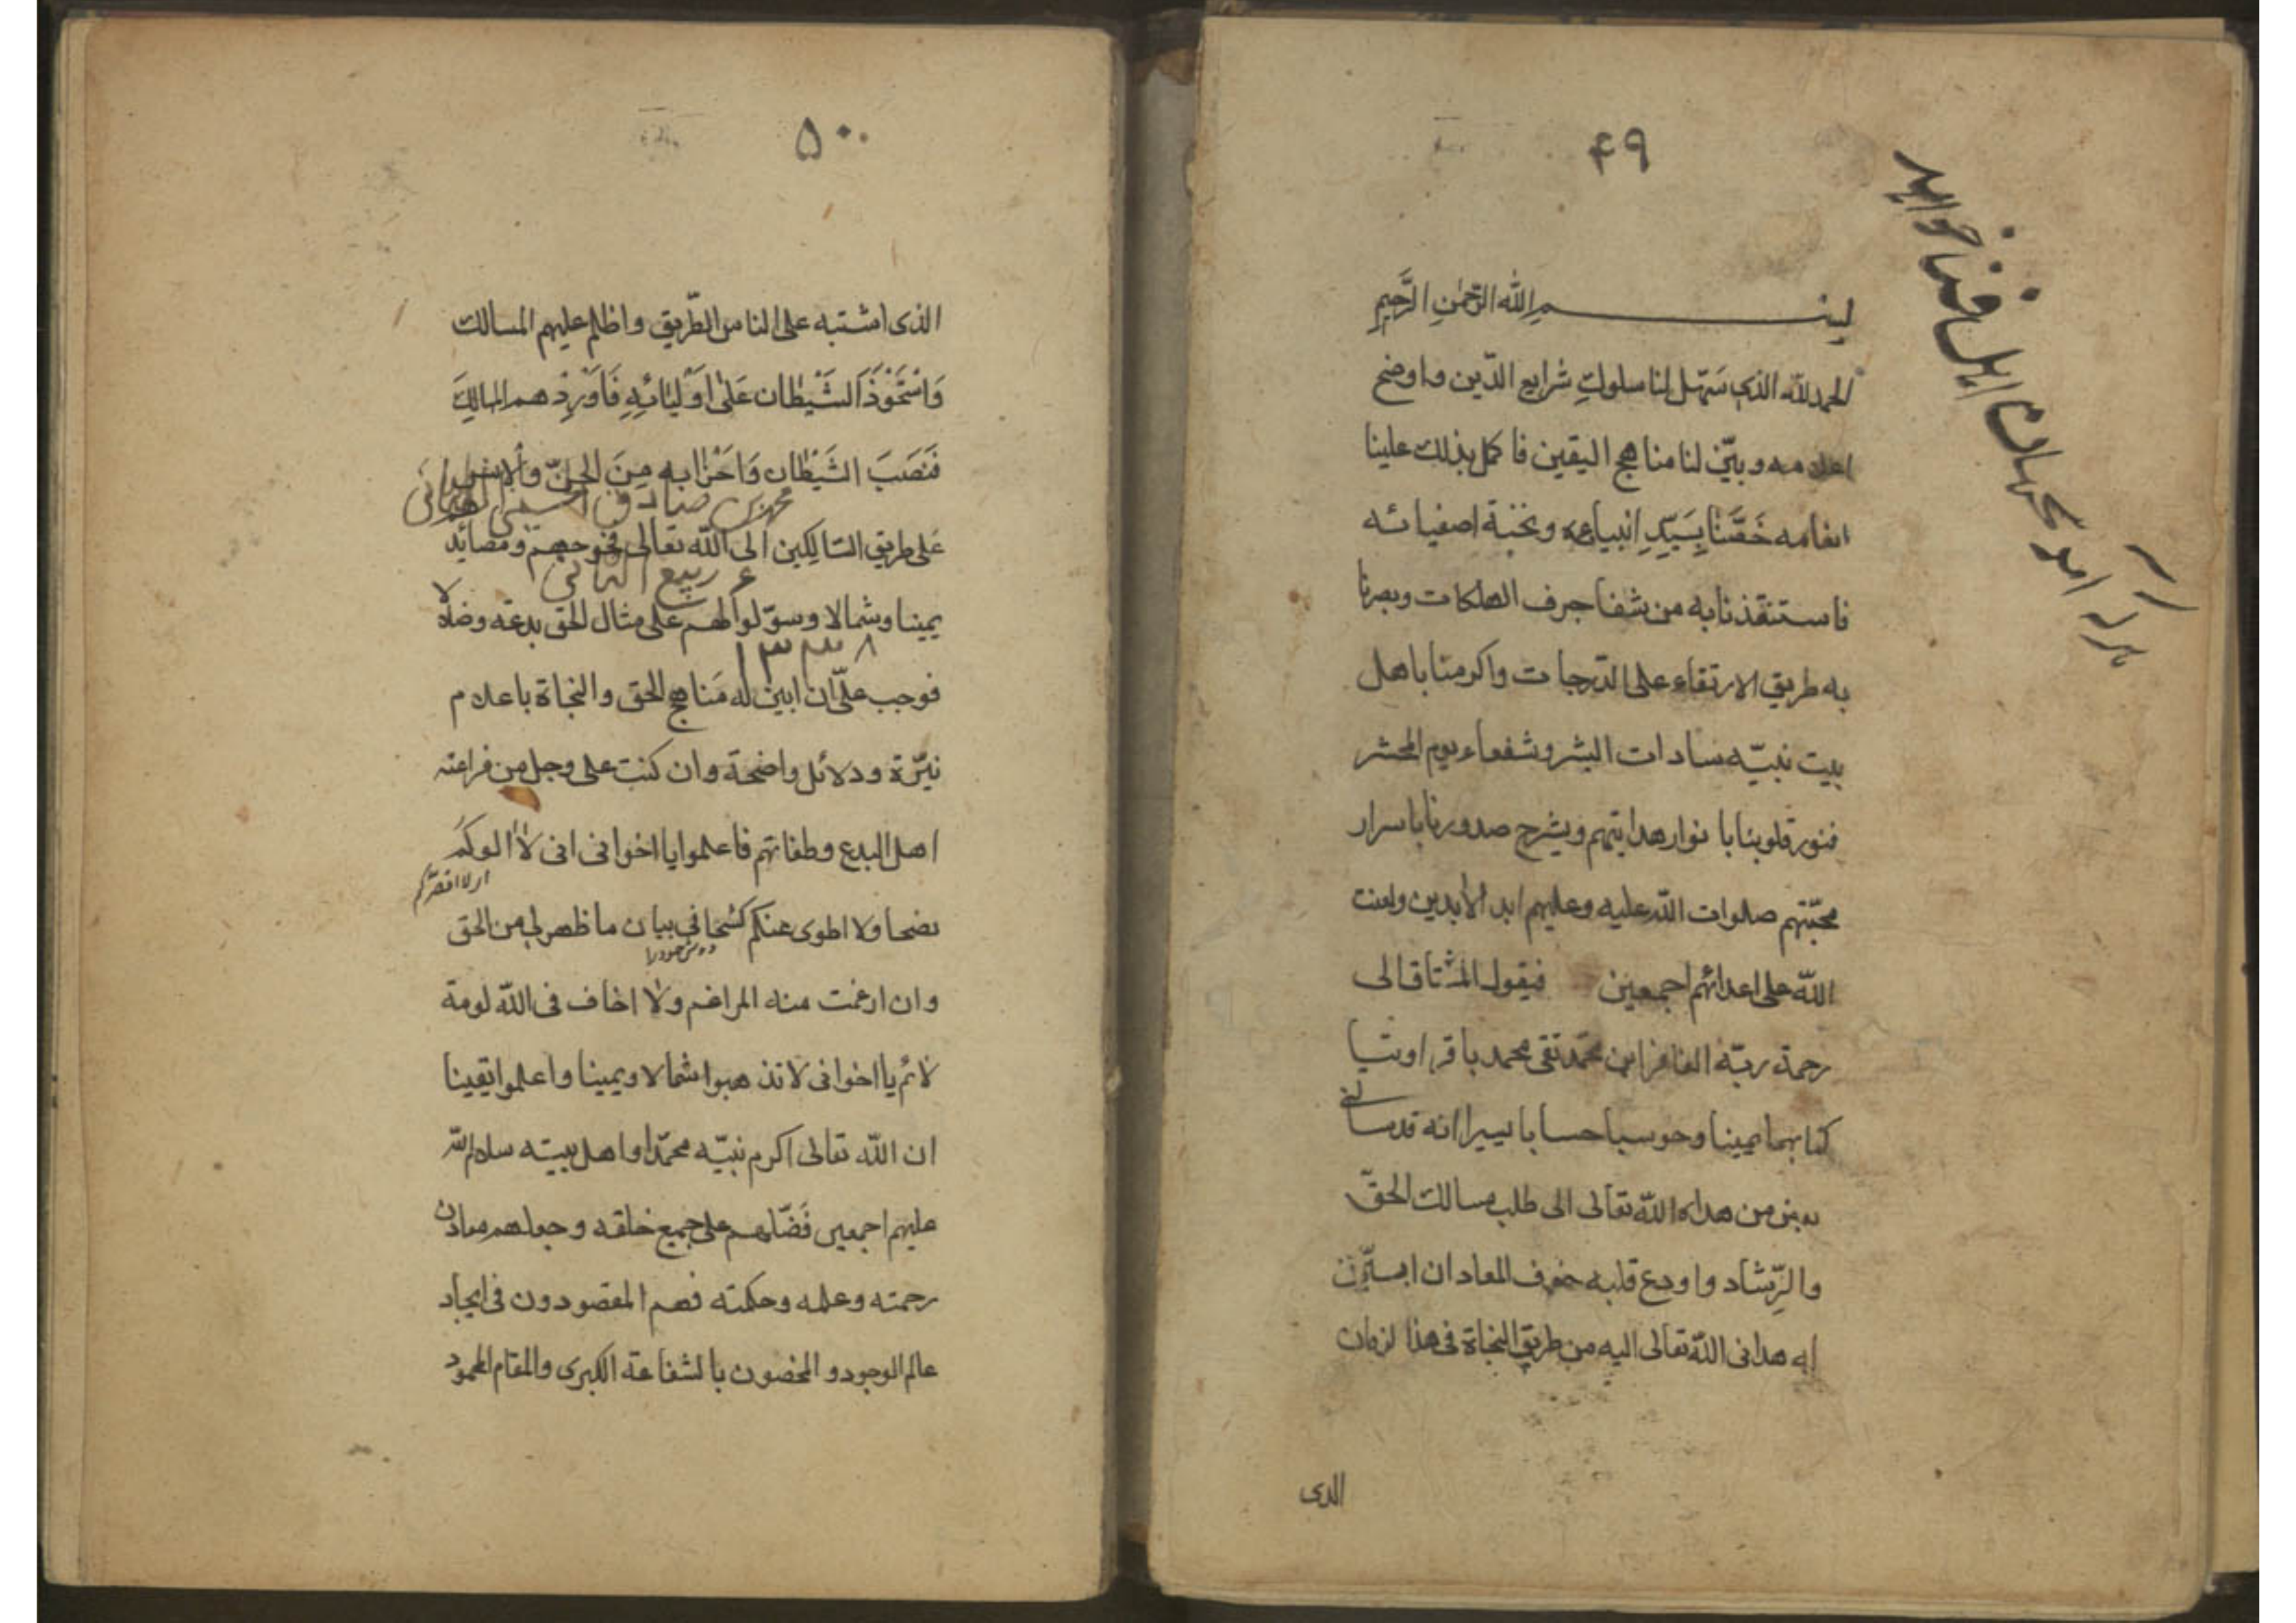 ۴۹
هر که آمد بجهان اهل فنا خواهد
بسم الله الرَّحمٰنِ الرَّحِيمِ
الحمد لله الذي سَهّل لنا سلوك شرايع الدّين واوضح
اعلامه وبيّن لنا مناهج اليقين فاكمل بذلك علينا
انعامه خَصَّنَا بِسَيِّدِ انبياءه ونخبة اصفيائه
فاستنقذنا به من شفا جرف الهلكات وبصرنا
به طريق الارتقاء على الدّرجات واكرمنا باهل
بيت نبيّه سادات البشر وشفعاء يوم المحشر
فنور قلوبنا بانوار هدايتهم ويشرح صدورنا باسرار
محبّتهم صلوات اللّه عليه وعليهم ابد الأبدين ولعنت
اللّه على اعدائهم اجمعين فيقول المشتاق الى
رحمة ربّه الغافر ابن محمّد تقى محمد باقر اوتيا
كتابهما يمينا وحوسبا حسابا يسيرا انه قد سألني
بعض من هداه اللّه تعالى الى طلب مسالك الحقّ
والرّشاد واودع قلبه خوف المعاد ان ابيّن
له هدانى اللّه تعالى اليه من طريق النجاة فى هذا لزمان
الذى
۵۰
الذى اشتبه على الناس الطّريق واظلم عليهم المسالك
وَاسْتَحْوَذَ الشَّيْطان عَلىٰ اَوْلِيٰائِهِ فَاَوْرَدْهم المهالِكَ
فَنَصَبَ الشَّيْطان وَاَحْزابه مِنَ الجنّ والإنس
محمد بن صادق الحسينى الهمدانى
عَلى طريق السّالِكين الى اللّه تعالى فخوخهم ومصائد
ع ربيع الثانى
يمينا وشمالا وسوّلوا لهم على مثال الحق بدعه وضلالا
۱۳۳۸
فوجب علىّ ان ابين له مَناهج الحق والنجاة باعلام
نيّرة ودلائل واضحة وان كنت على وجل من فراعنه
اهل البدع وطغاتهم فاعلموا يا اخوانى انى لاٰ ألوكمَ
اى لا اقصّركم
نصحا ولا اطوى عنكم كشحا فى بيان ما ظهر لى من الحق
وان ارغمت منه المراغم ولاٰ اخاف فى اللّه لومة
لاٰئم يا اخوانى لا تذهبوا شمالا ويمينا واعلموا يقينا
ان اللّه تعالى اكرم نبيّه محمّدا واهل بيته سلام اللّه
عليهم اجمعين فَضّلهم على جميع خلقه وجعلهم معادن
رحمته وعلمه وحكمته فهم المقصودون فى ايجاد
عالم الوجود والمخصون بالشفاعة الكبرى والمقام المحمود